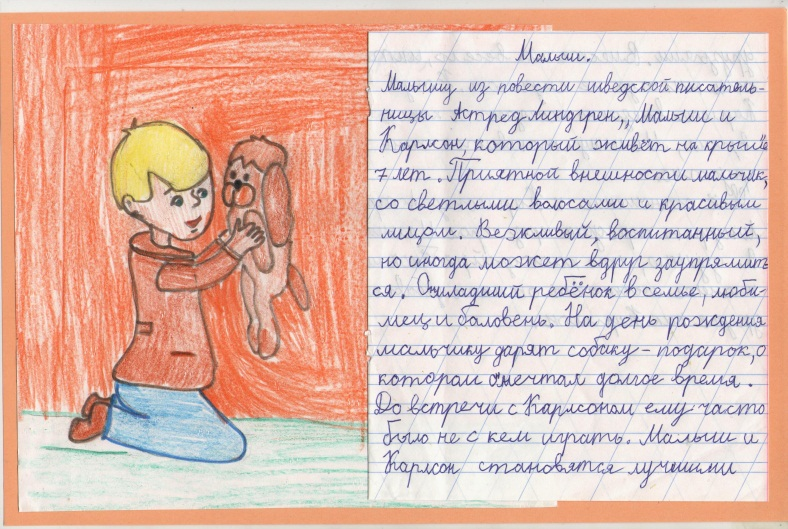 Малыш.
Малышу из повести шведской писатель-
ницы Астред Линдгрен „Малыш и
Карлсон, который живёт на крыше"
7 лет. Приятной внешности мальчик,
со светлыми волосами и красивым
лицом. Вежливый, воспитанный,
но иногда может вдруг заупрямить
ся. Он младший ребёнок в семье, люби-
мец и баловень. На день рождения
мальчику дарят собаку - подарок, о
котором мечтал долгое время.
До встречи с Карлсоном ему часто
было не с кем играть. Малыш и
Карлсон становятся лучшими